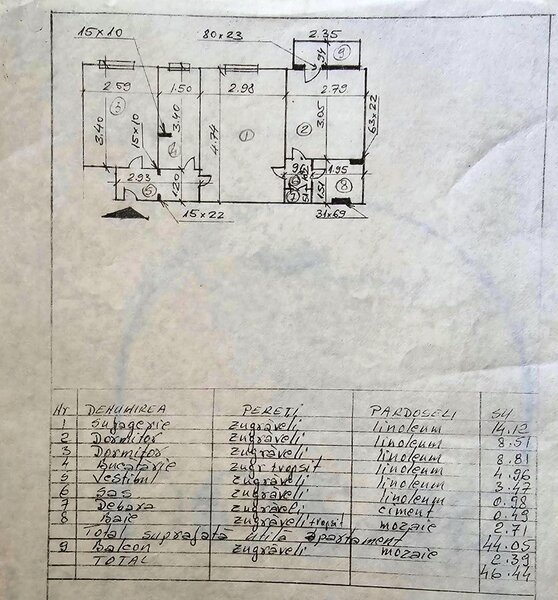 15×10
80×23
2.35
.94
9
2.59
1.50
2.98
2.79
3
3.40
15×10
3.40
4
4.74
1
2
3.05
63×22
2.93
5
1.20
.96
6
7
1.51
1.95
8
15×22
31×69
Nr DENUMIREA PEREȚI PARDOSELI SU
1 Sufragerie zugrăveli linoleum 14.12
2 Dormitor zugrăveli linoleum 8.51
3 Dormitor zugrăveli linoleum 8.81
4 Bucatărie zugr tropsit linoleum 4.96
5 Vestibul zugrăveli linoleum 3.47
6 Sas zugrăveli linoleum 0.98
7 Debara zugrăveli ciment 0.49
8 Baie zugrăveli tropsit mozaic 2.71
Total suprafața utilă apartament 44.05
9 Balcon zugrăveli mozaic 2.39
TOTAL 46.44